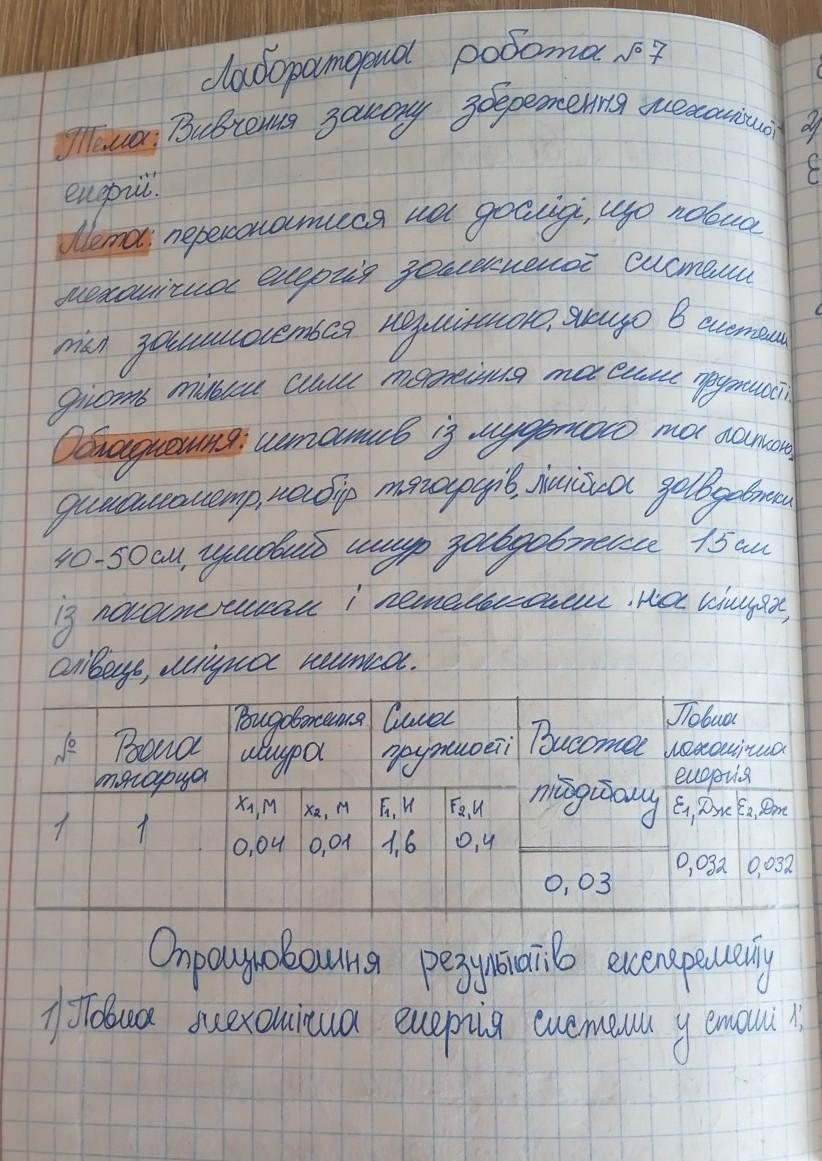 Лабораторна робота №7
Тема: Вивчення закону збереження механічної
енергії.
Мета: переконатися на досліді, що повна
механічна енергія замкненої системи
тіл залишається незмінною, якщо в системі
діють тільки сили тяжіння та сили пружності.
Обладнання: штатив із муфтою та лапкою,
динамометр, набір тягарців, лінійка завдовжки
40-50см, гумовий шнур завдовжки 15см
із покажчиком і петельками на кінцях,
олівець, міцна нитка.
№ Вага тягарця Видовження шнура Сила пружності Висота підйому Повна механічна енергія
x1, м x2, м F1, Н F2, Н E1, Дж E2, Дж
1 1 0,04 0,01 1,6 0,4 0,03 0,032 0,032
Опрацювання результатів експеременту
1) Повна механічна енергія системи у стані 1: